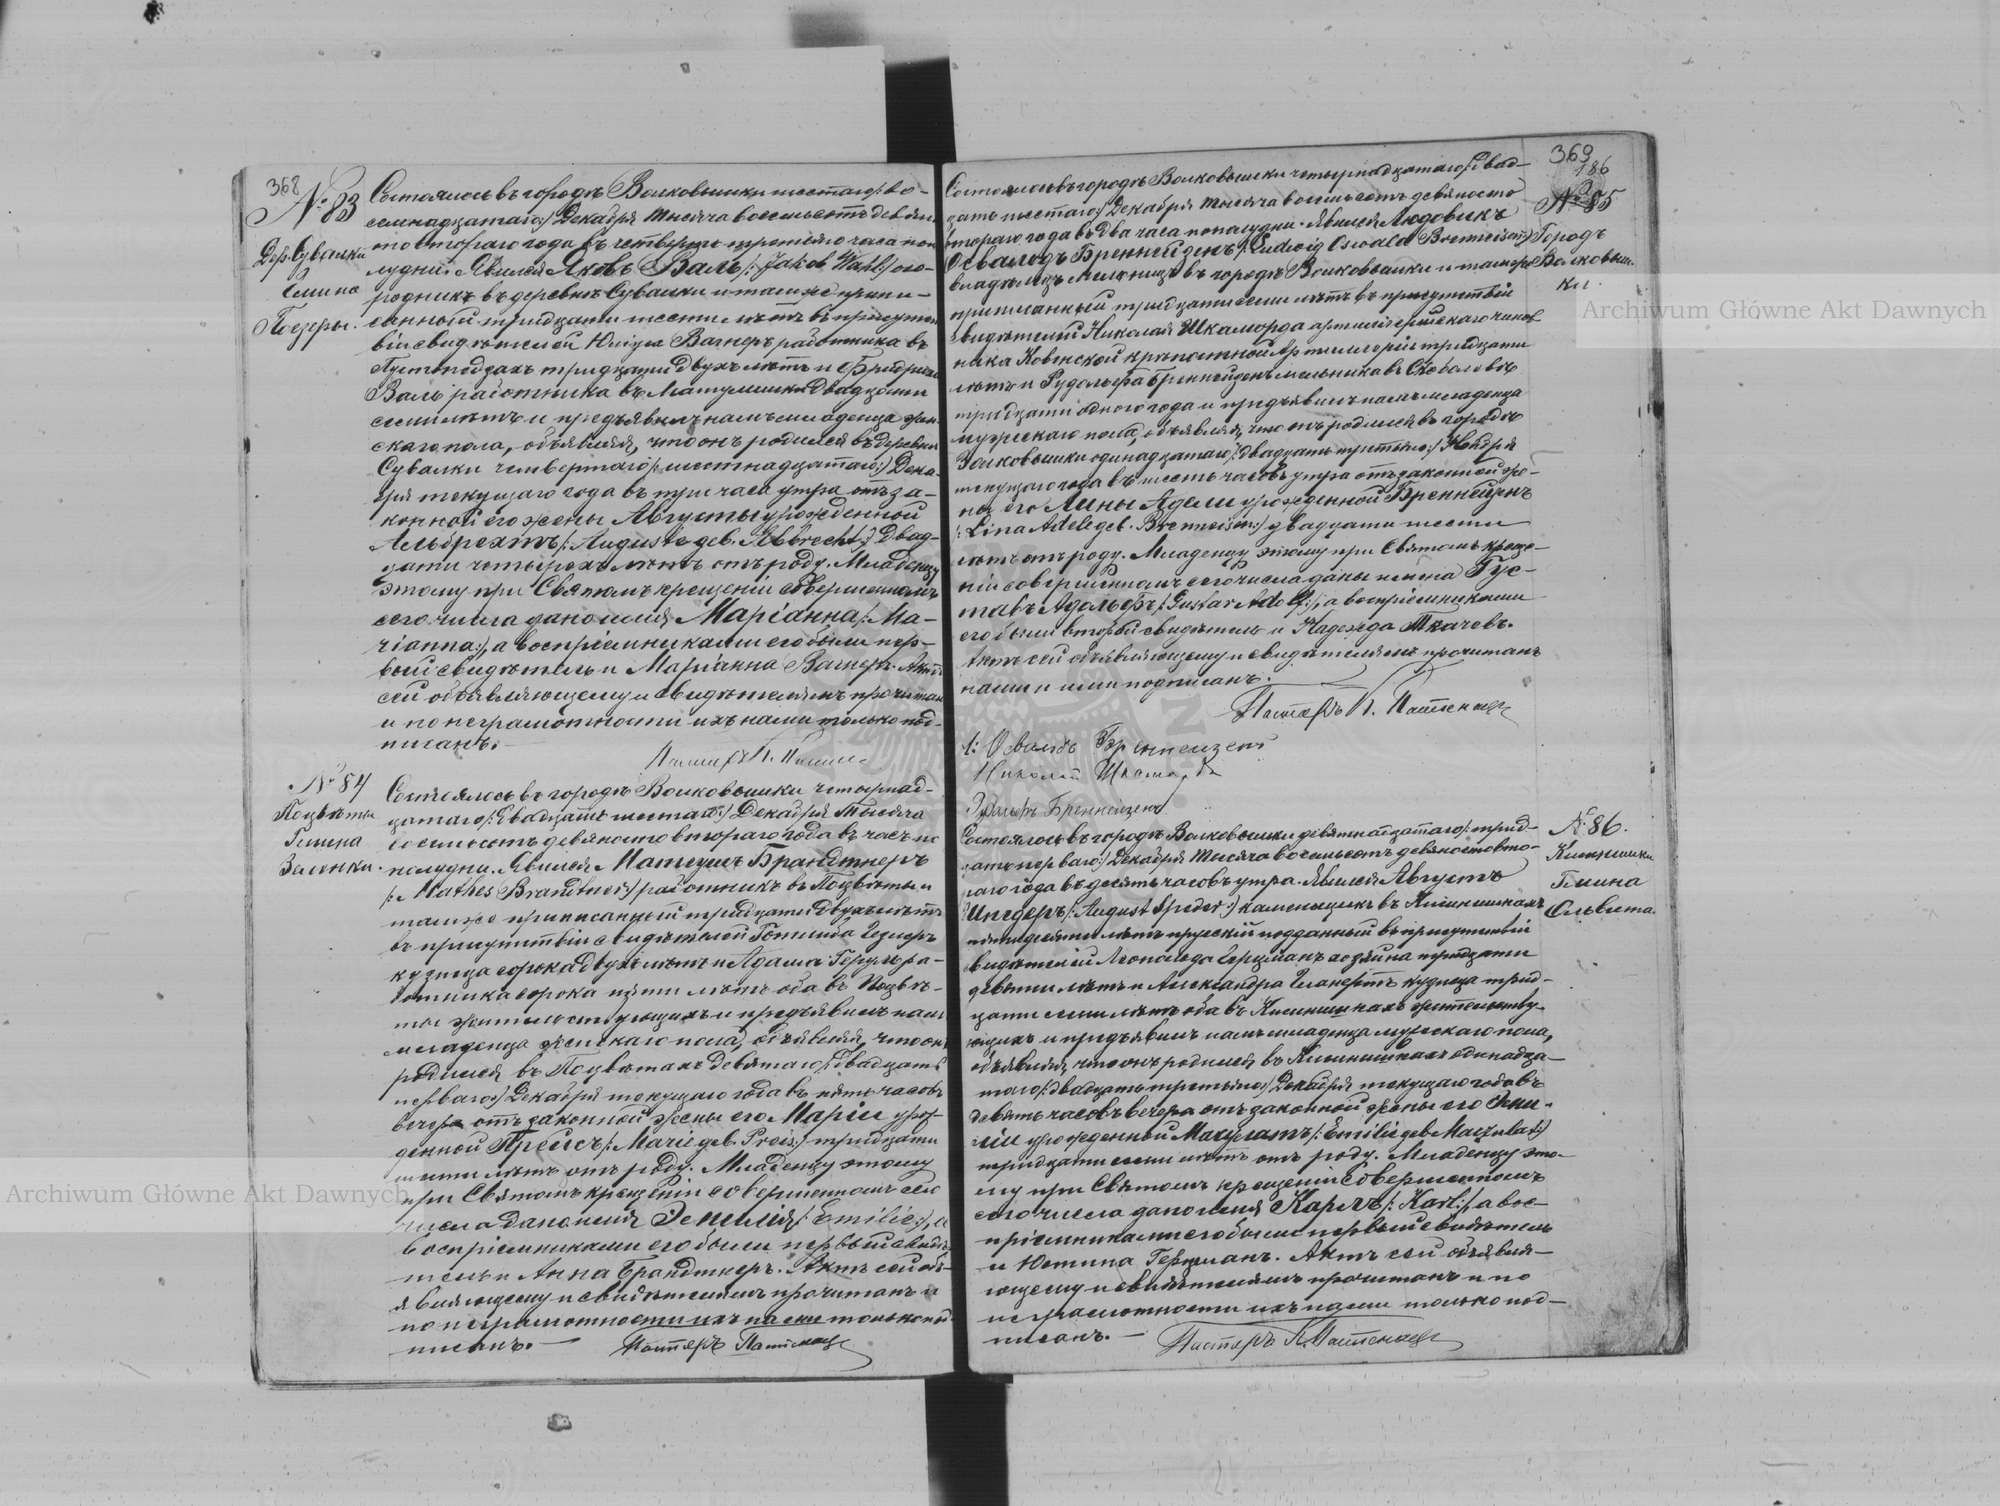 368
№ 83
Дер. Сувалки
Гмина
Поезеры.
Состоялось въ городѣ Волковышки шестаго /: во-
семнадцатаго :/ Декабря тысяча восемьсотъ девяно
сто втораго года въ четверть третьяго часа попо
лудни. Явился Яковъ Валь /: Jakob Wahl :/ ого-
родникъ въ деревнѣ Сувалки и тамже припи-
санный тридцати шести лѣтъ въ присутст
віи свидѣтелей Юліуса Вагнеръ работника въ
тридцати двухъ лѣтъ и Фридриха
Валь работника въ двадцати
семи лѣтъ и предъявилъ намъ младенца жен
скаго пола, объявляя, что онъ родился въ деревнѣ
Сувалки четвертаго /: шестнадцатаго :/ Дека-
бря текущаго года въ три часа утра отъ за-
конной его жены Августы урожденной
Альбрехтъ /: Auguste geb. Albrecht :/ двад-
цати четырехъ лѣтъ отъ роду. Младенцу
этому при Святомъ крещеніи совершенномъ
сего числа дано имя Маріанна /: Ma-
rianna :/, а воспріемниками его были пер-
вый свидѣтель и Маріанна Вагнеръ. Актъ
сей объявляющему и свидѣтелямъ прочитанъ
и по неграмотности ихъ нами только под-
писанъ. —
Пасторъ
№ 84
Поцвѣты
Гмина
Зеленка.
Состоялось въ городѣ Волковышки четырнад-
цатаго /: двадцать шестаго :/ Декабря тысяча
восемьсотъ девяносто втораго года въ часъ по
полудни. Явился Матеушъ Брандтнеръ
/: Mathes Brandtner :/ работникъ въ Поцвѣты и
тамже приписанный тридцати двухъ лѣтъ
въ присутствіи свидѣтелей Готлиба
кузнеца сорока двухъ лѣтъ и Адама ра-
ботника сорока пяти лѣтъ оба въ Поцвѣ-
ты жительствующихъ и предъявилъ намъ
младенца женскаго пола, объявляя, что онъ
родился въ Поцвѣтахъ девятаго /: двадцать
перваго :/ Декабря текущаго года въ пять часовъ
вечера отъ законной жены его Маріи урож
денной Прейсъ /: Marie geb. Preis :/ тридцати
лѣтъ отъ роду. Младенцу этому
при Святомъ крещеніи совершенномъ сего
числа дано имя Эмилія /: Emilie :/, а
воспріемниками его были первый свидѣ
тель и Анна Брандтнеръ. Актъ сей объ-
являющему и свидѣтелямъ прочитанъ и
по неграмотности ихъ нами только под
писанъ. —
Пасторъ
369
186
№ 85
Городъ
Волковыш-
ки.
Состоялось въ городѣ Волковышки четырнадцатаго /: двад-
цать шестаго :/ Декабря тысяча восемьсотъ девяносто
втораго года въ два часа пополудни. Явился Людовикъ
Освальдъ Бреннейзенъ /: Ludwig Oswald Brenneisen :/
владѣлецъ мельницы въ городѣ Волковышки и тамже
приписанный тридцати семи лѣтъ въ присутствіи
свидѣтелей Николая Шкаморда артиллерійскаго чинов
ника Ковенской крѣпостной Артиллеріи тридцати
лѣтъ и Рудольфа Бреннейзенъ мельника въ
тридцати одного года и предъявилъ намъ младенца
мужескаго пола, объявляя, что онъ родился въ городѣ
Волковышки одинадцатаго /: двадцать третьяго :/ Ноября
текущаго года въ шесть часовъ утра отъ законной же-
ны его Лины Адели урожденной Бреннейзенъ
/: Lina Adele geb. Brenneisen :/ двадцати шести
лѣтъ отъ роду. Младенцу этому при Святомъ креще-
ніи совершенномъ сего числа даны имена Гус-
тавъ Адольфъ /: Gustav Adolf :/, а воспріемниками
его были второй свидѣтель и Надежда Ткачевъ.
Актъ сей объявляющему и свидѣтелямъ прочитанъ
нами и ими подписанъ.
Пасторъ
Л: Освальдъ Бреннейзенъ
Николай Шкаморда
Рудольфъ Бреннейзенъ
№ 86.
Гмина
Ольвита.
Состоялось въ городѣ Волковышки девятнадцатаго /: трид-
цать перваго :/ Декабря тысяча восемьсотъ девяносто вто-
раго года въ десять часовъ утра. Явился Августъ
/: August :/ каменьщикъ въ
пятидесяти лѣтъ прусскій подданный въ присутствіи
свидѣтелей Леопольда Герцманъ хозяина тридцати
девяти лѣтъ и Александра кузнеца трид-
цати семи лѣтъ оба въ жительству-
ющихъ и предъявилъ намъ младенца мужескаго пола,
объявляя, что онъ родился въ одинадца-
таго /: двадцать третьяго :/ Декабря текущаго года въ
девять часовъ вечера отъ законной жены его Эми-
ліи урожденной Мацулатъ /: Emilie geb. Maczulat :/
тридцати семи лѣтъ отъ роду. Младенцу это-
му при Святомъ крещеніи совершенномъ
сего числа дано имя Карлъ /: Karl :/, а вос-
пріемниками его были первый свидѣтель
и Юстина Герцманъ. Актъ сей объявля-
ющему и свидѣтелямъ прочитанъ и по
неграмотности ихъ нами только под-
писанъ. —
Пасторъ
Archiwum Główne Akt Dawnych
Archiwum Główne Akt Dawnych